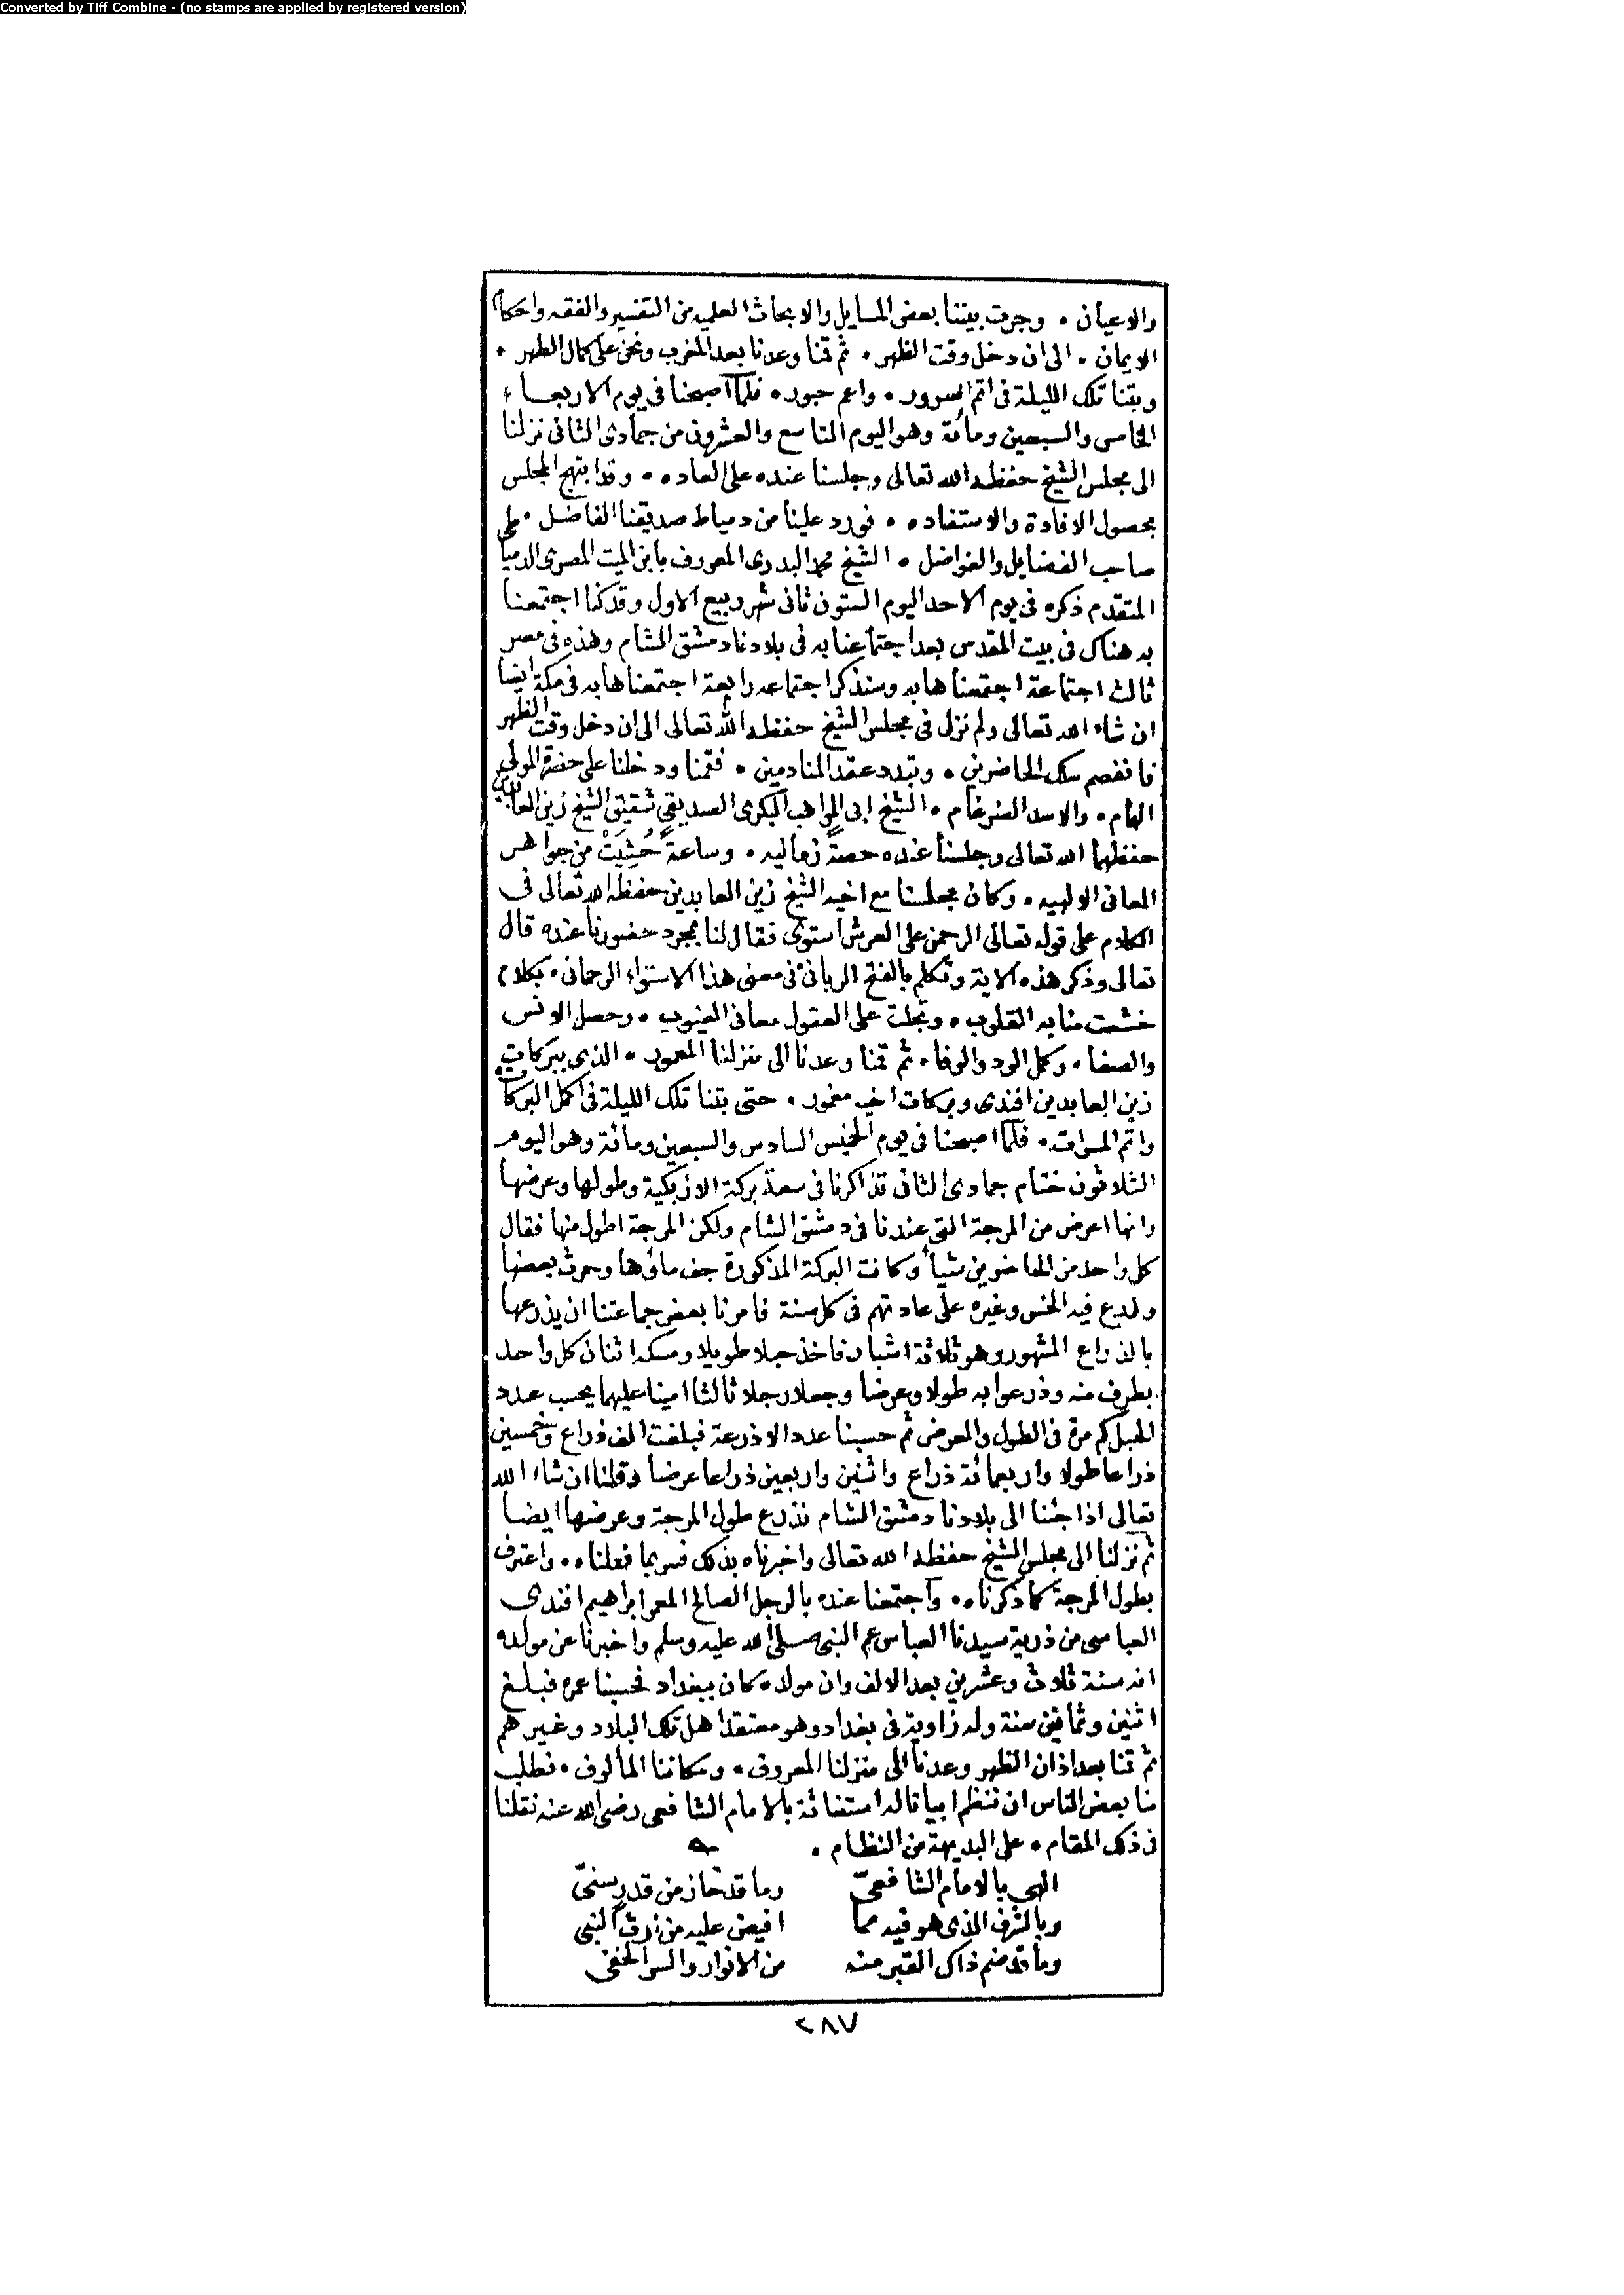 Converted by Tiff Combine - (no stamps are applied by registered version)
والاعيان . وجرت بيننا بعض المسايل والابحاث العلميه من التفسير والفقه واحكام
الايمان . الى ان دخل وقت الظهر . ثم قمنا وعدنا بعد المغرب ونحن على كمال الطهر .
وبتنا تلك الليلة فى اتم السرور . واعم حبور . فلما اصبحنا فى يوم الاربعاء
الخامس والسبعين ومائة وهو اليوم التاسع والعشرون من جمادى الثانى نزلنا
الى مجلس الشيخ حفظه الله تعالى وجلسنا عنده على العاده . وقد ابتهج المجلس
بحصول الافادة والاستفاده . فورد علينا من دمياط صديقنا الفاضل .
صاحب الفضايل والفواضل . الشيخ محمد البدرى المعروف بابن الميت المصرى الدمياطى
المتقدم ذكره فى يوم الاحد اليوم الستون ثانى شهر ربيع الاول وقد كنا اجتمعنا
به هناك فى بيت المقدس بعد اجتماعنا به فى بلادنا دمشق الشام وهذه فى مصر
ثالث اجتماعة اجتمعناها به وسنذكر اجتماعه رابعة اجتمعناها به فى مكة ايضا
ان شاء الله تعالى ولم نزل فى مجلس الشيخ حفظه الله تعالى الى ان دخل وقت الظهر
فانفصم سلك الحاضرين . وتبدد عقد المنادمين . فقمنا ودخلنا على حضرة المولى
الهمام . والاسد الضرغام . الشيخ ابى المواهب البكرى الصديقى شقيق الشيخ زين العابدين
حفظهما الله تعالى وجلسنا عنده حصةً زمانيه . وساعةً حُشِيَتْ من جواهر
المعانى الالهيه . وكان مجلسنا مع اخيه الشيخ زين العابدين حفظه الله تعالى فى
الكلام على قوله تعالى الرحمن على العرش استوى فقال لنا بمجرد حضورنا عنده قال
تعالى وذكر هذه الاية وتكلم بالفتح الربانى فى معنى هذا الاستواء الرحمانى . بكلام
خشعت منا به القلوب . وتجلت على العقول معانى الغيوب . وحصل الانس
والصفا . وكمل الود والوفا . ثم قمنا وعدنا الى منزلنا المعمور . الذى ببركات
زين العابدين افندى وبركات اخيه مغمور . حتى بتنا تلك الليلة فى اكمل البركات
واتم المسرات . فلما اصبحنا فى يوم الخميس السادس والسبعين ومائة وهو اليوم
الثلاثون ختام جمادى الثانى تذاكرنا فى سعة بركة الازبكية وطولها وعرضها
وانها اعرض من المرجة التى عندنا فى دمشق الشام ولكن المرجة اطول منها فقال
كل واحد من الحاضرين شيأ وكانت البركة المذكورة جف ماؤها وحرث بعضها
وزرع فيه الخس وغيره على عادتهم فى كل سنة فامرنا بعض جماعتنا ان يذرعها
بالذراع المشهور وهو ثلاثة اشبار فاخذ حبلا طويلا ومسكه اثنان كل واحد
بطرف منه وذرعوا به طولا وعرضا وجعلا رجلا ثالثا امينا عليهما يحسب عدد
الحبل كم مرة فى الطول والعرض ثم حسبنا عدد الاذرعة فبلغت الف ذراع وخمسين
ذراعا طولا واربعمائة ذراع واثنين واربعين ذراعا عرضا وقلنا ان شاء الله
تعالى اذا جئنا الى بلادنا دمشق الشام نذرع طول المرجة وعرضها ايضا
ثم نزلنا الى مجلس الشيخ حفظه الله تعالى واخبرناه بذلك فسر بما فعلناه . واعترف
بطول المرجة كما ذكرناه . واجتمعنا عنده بالرجل الصالح المعمر ابراهيم افندى
العباسى من ذرية سيدنا العباس عم النبى صلى الله عليه وسلم واخبرنا عن مولده
انه سنة ثلاث وعشرين بعد الالف وان مولده كان ببغداد فحسبنا عمره فبلغ
اثنين وثمانين سنة وله زاوية فى بغداد وهو معتقد اهل تلك البلاد وغيرهم
ثم قمنا بعد اذان الظهر وعدنا الى منزلنا المعروف . ومكاننا المألوف . فطلب
منا بعض الناس ان ننظم ابياتا له استغاثة بالامام الشافعى رضى الله عنه فقلنا
فى ذلك المقام . على البديهة من النظام .
الهى بالامام الشافعىّ وما قد حاز من قدر سنىّ
وبالشرف الذى هو فيه مما افيض عليه من ارث النبى
وما قد ضم ذاك القبر منه من الانوار والسر الخفى
٢٨٧